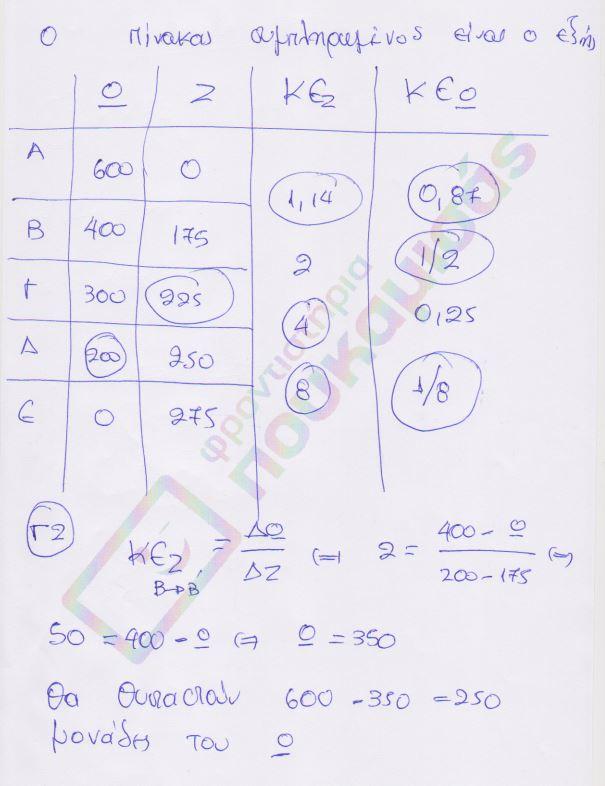 Ο πίνακας συμπληρωμένος είναι ο εξής
Ο Ζ ΚЄΖ ΚЄΟ
Α 600 0
1,14 0,87
Β 400 175
2 1/2
Γ 300 225
4 0,25
Δ 200 250
8 1/8
Є 0 275
φροντιστήρια
πουκαμισάς
Γ2
ΚЄΖ Β→Β΄ = ΔΟ/ΔΖ ⇔ 2 = (400 - Ο)/(200 - 175) ⇔
50 = 400 - Ο ⇔ Ο = 350
Θα θυσιαστούν 600 - 350 = 250
μονάδες του Ο